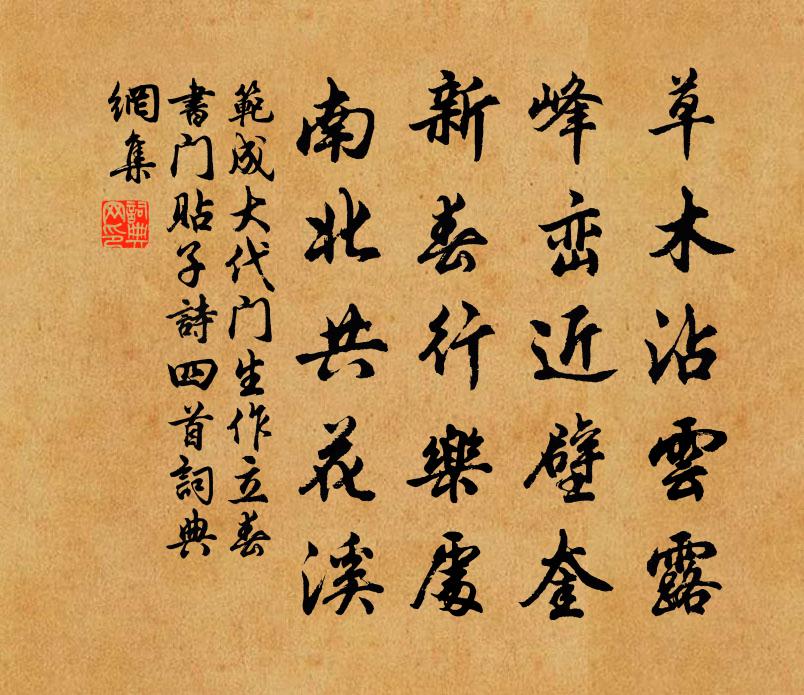 草木沾雲露
峰巒近壁奎
新春行樂處
南北共花溪
範成大代门生作立春
書门貼子詩四首詞典
網集
詞典
网印